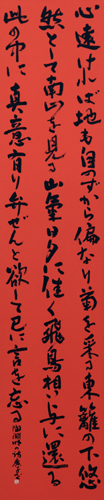 心遠ければ地も自のずから偏なり菊を采る東籬の下悠
然として南山を見る山氣日夕に佳く飛鳥相い与に還る
此の中に真意有り弁ぜんと欲して已に言を忘る 陶淵明の詩